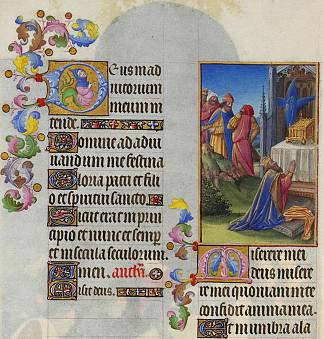 Deus in ad
iutorium
meum in
tende
Domine ad adiu
uandum me festina
Gloria patri et fili
o et spiritui sancto
Sicut erat in prin
cipio et nunc et semp
et in secula seculorum.
Amen.
Misit deus.
Miserere mei
deus misere
re mei quoniam in te
confidit anima mea.
Et in umbra ala